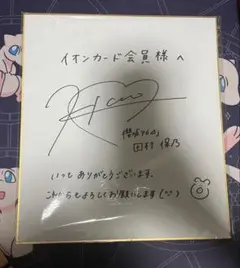 イオンカード会員様へ
櫻坂46
田村 保乃
いつもありがとうございます。
これからもよろしくお願いします(^^)